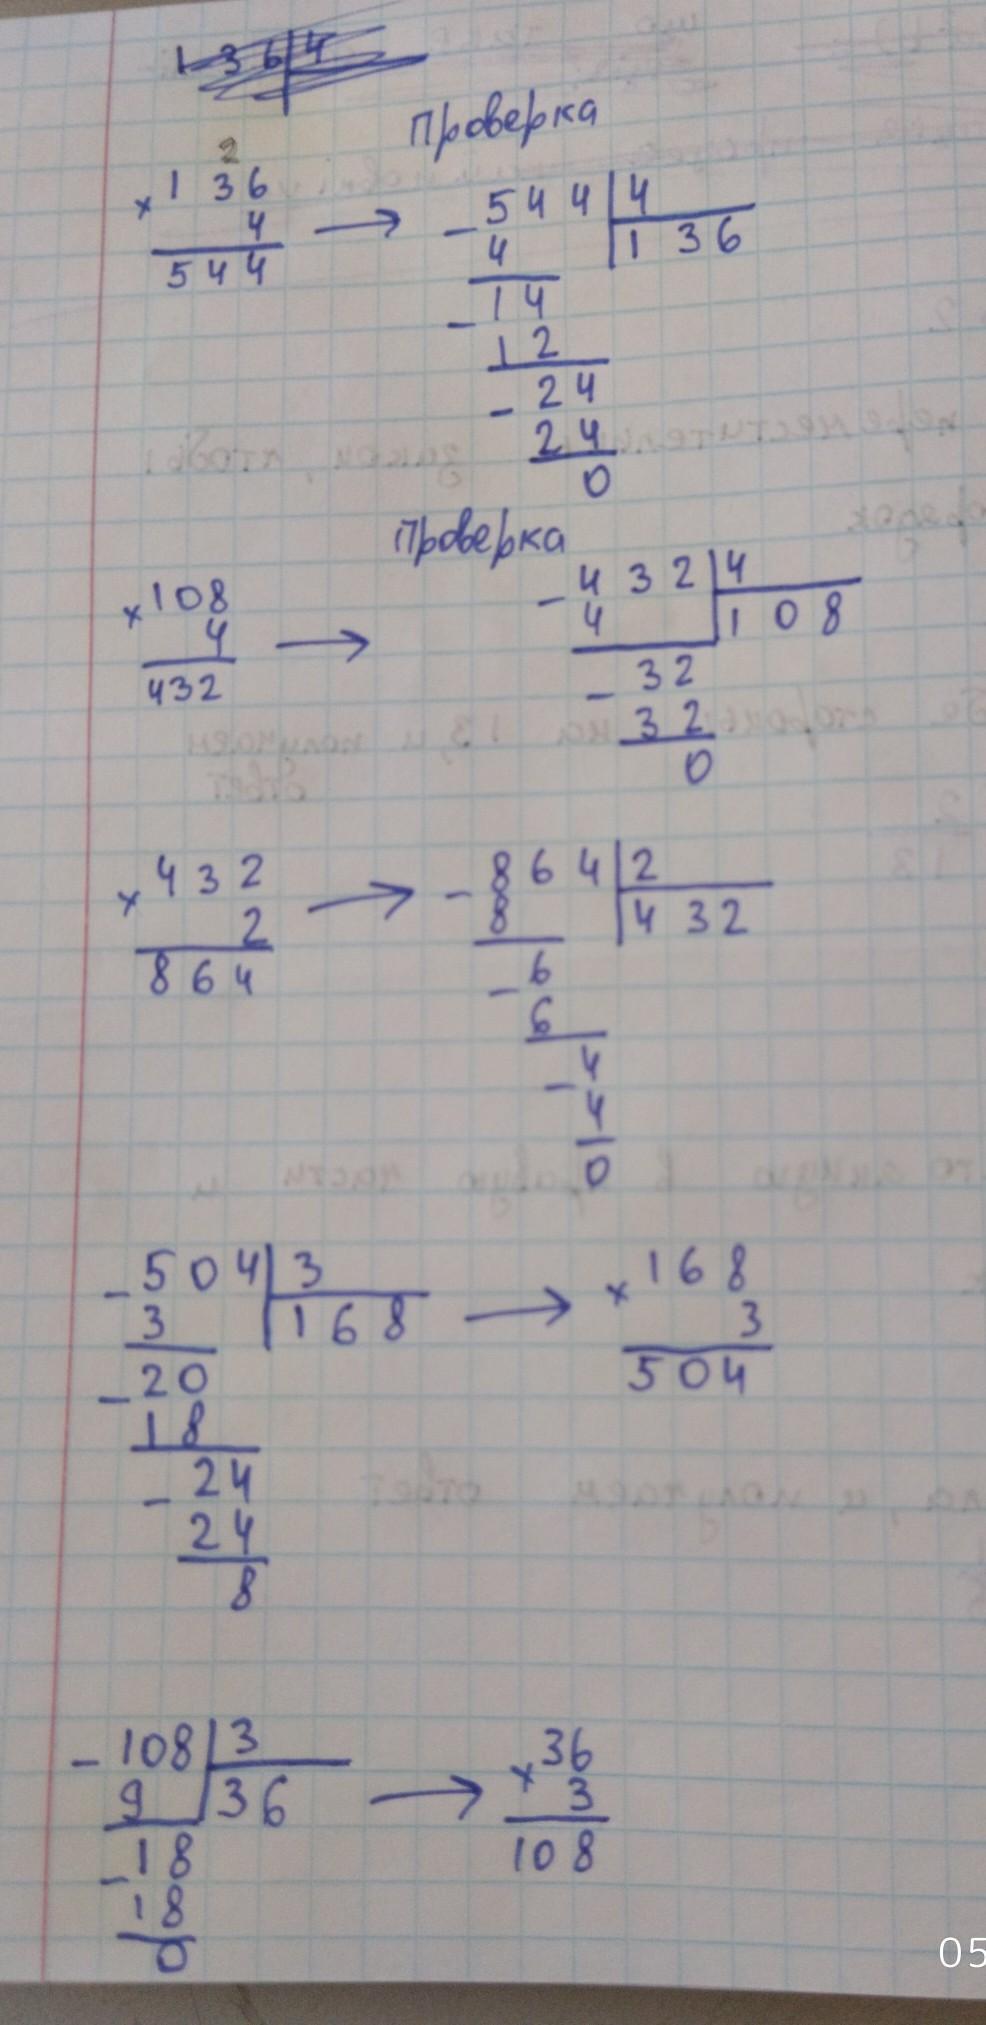 1 3 6 4
Проверка
2
× 1 3 6
4
5 4 4
→
- 5 4 4 | 4
4 | 1 3 6
- 1 4
1 2
- 2 4
2 4
0
Проверка
× 108
4
432
→
- 4 3 2 | 4
4 | 1 0 8
- 3 2
3 2
0
× 4 3 2
2
8 6 4
→
- 8 6 4 | 2
8 | 4 3 2
- 6
6
- 4
4
0
- 5 0 4 | 3
3 | 1 6 8
- 2 0
1 8
- 2 4
2 4
8
→
× 1 6 8
3
5 0 4
- 108 | 3
9 | 36
- 18
18
0
→
× 36
3
108
05